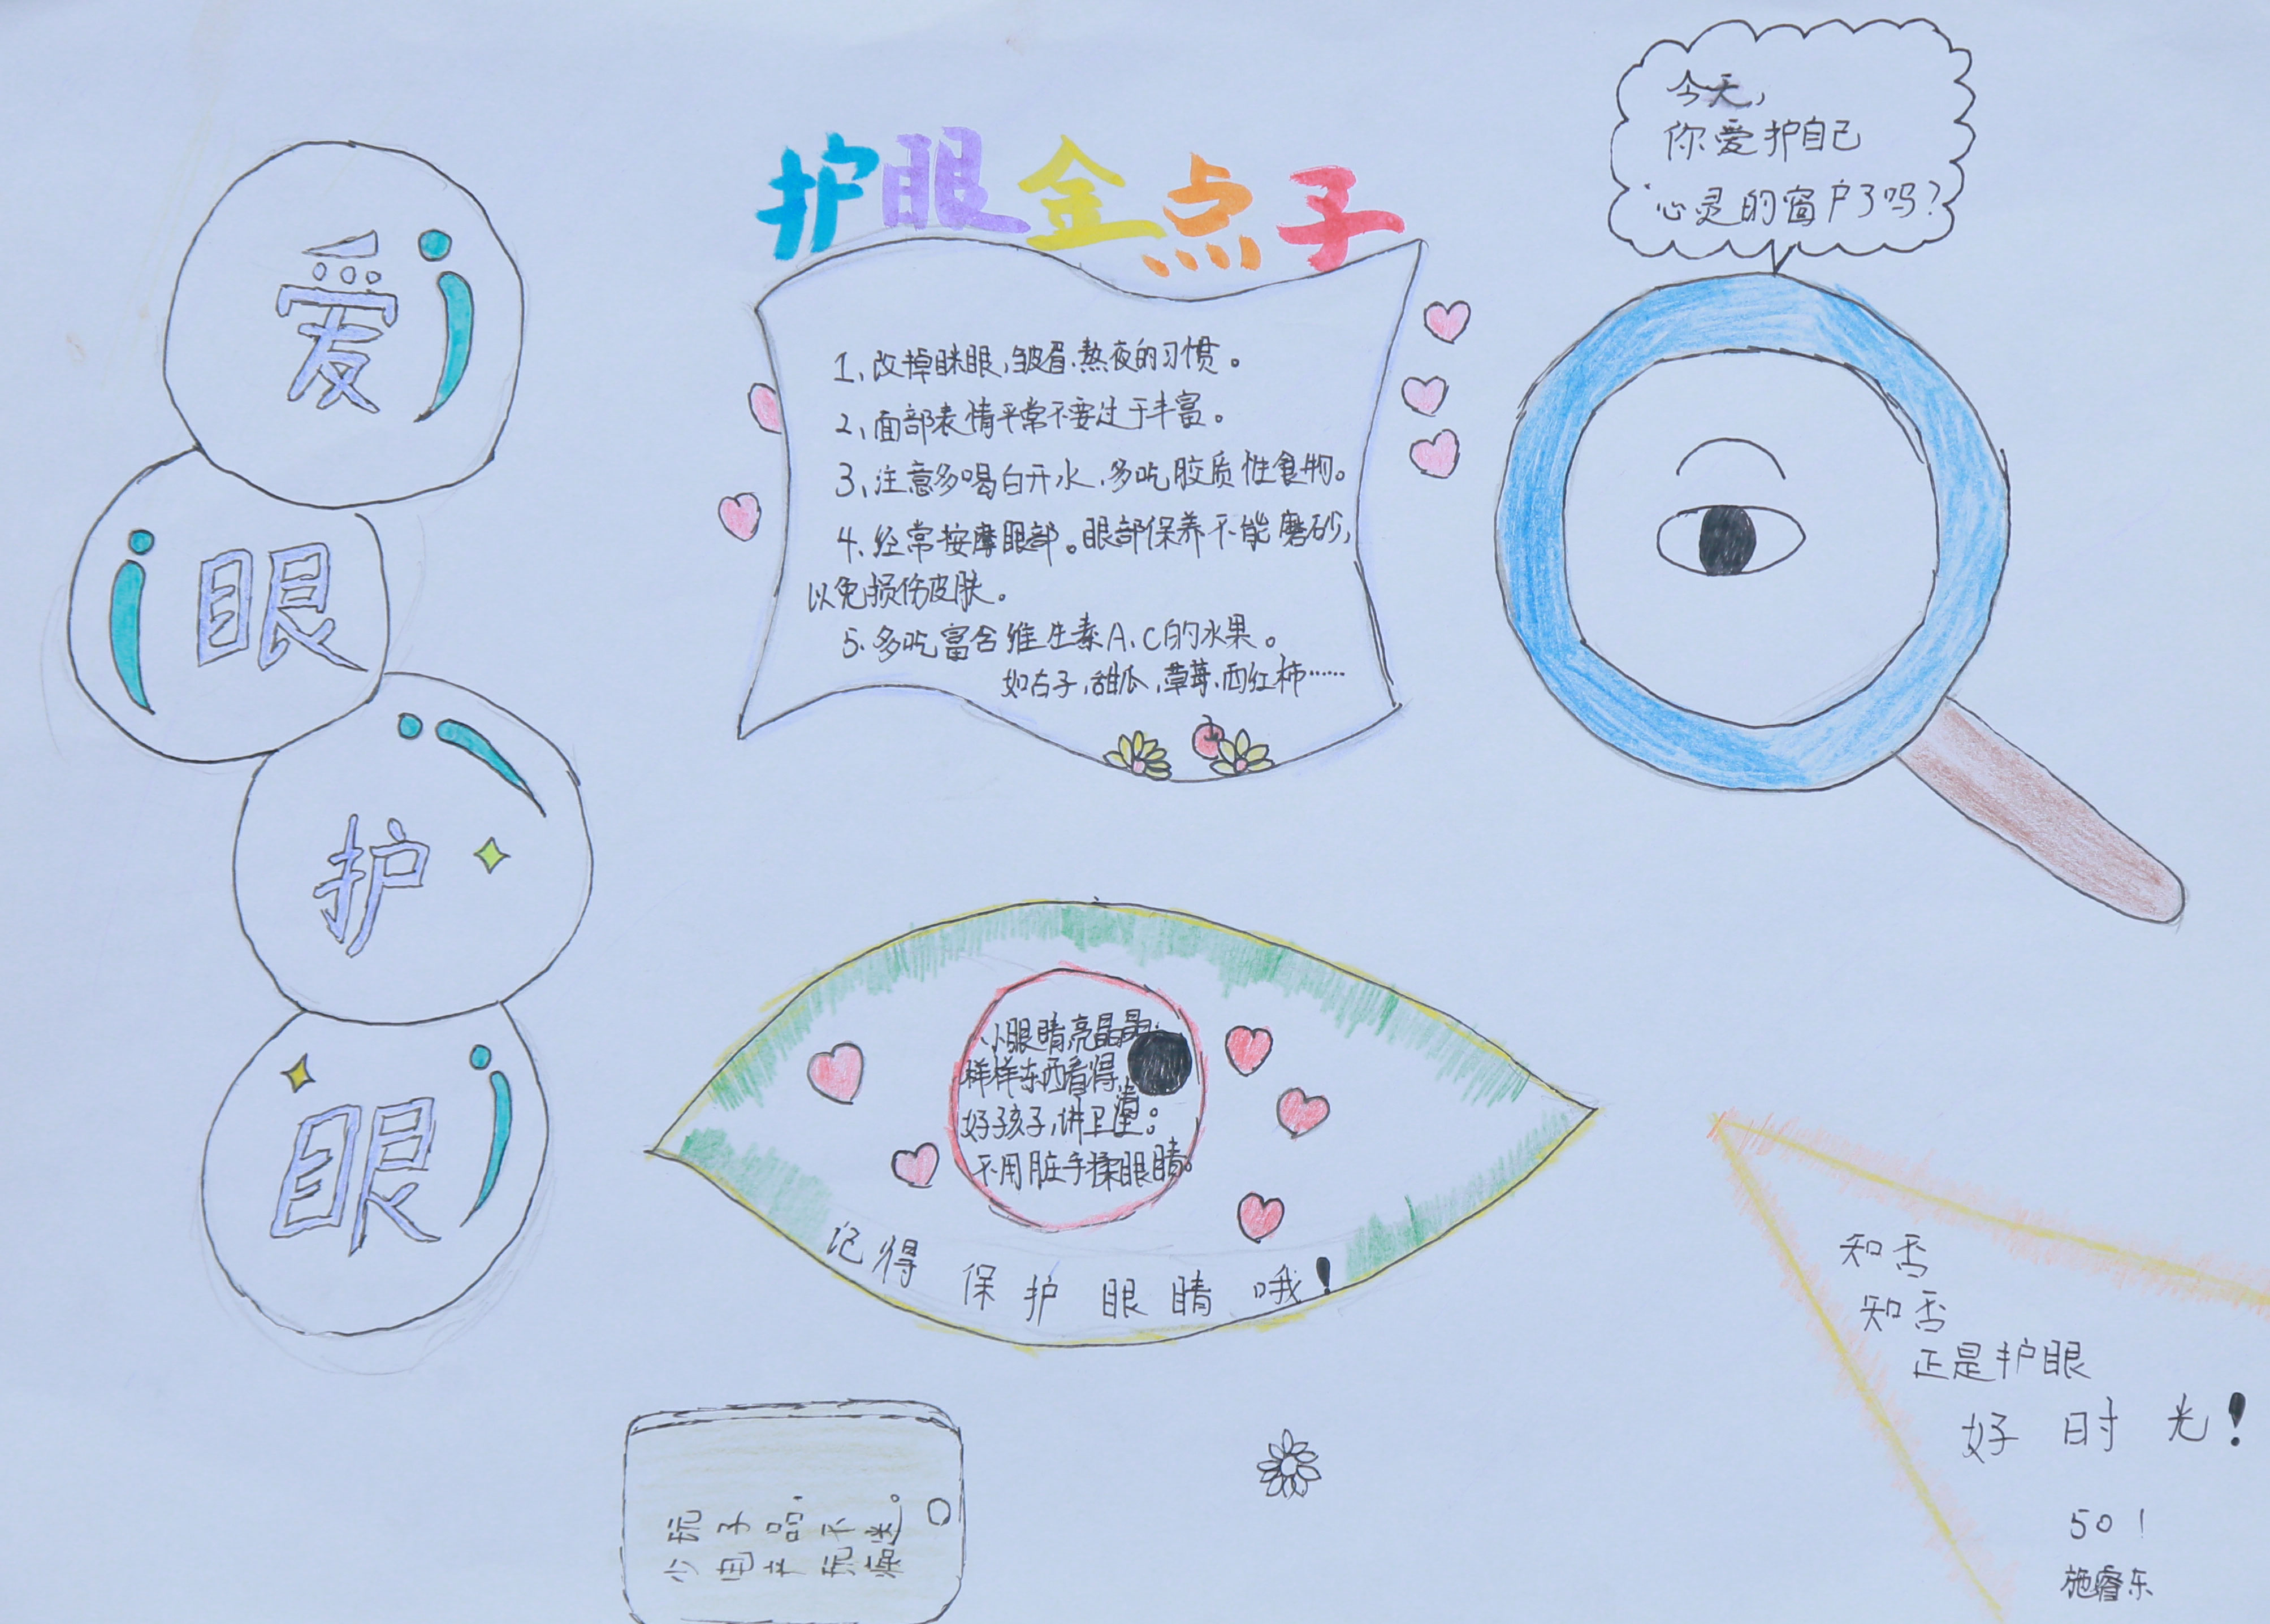 爱
眼
护
眼
护眼金点子
1、改掉眯眼,皱眉、熬夜的习惯。
2、面部表情平常不要过于丰富。
3、注意多喝白开水、多吃胶质性食物。
4、经常按摩眼部。眼部保养不能磨砂,
以免损伤皮肤。
5、多吃富含维生素A、C的水果。
如 子,甜瓜,草莓、西红柿……
今天,
你爱护自己
心灵的窗户了吗?
小眼睛亮晶晶,
样样东西看得清
好孩子,讲卫生。
不用脏手揉眼睛。
记得 保护眼睛哦!
少玩
电子
产品、
玩不
痴迷。
知否
知否
正是护眼
好时光!
501
施睿东